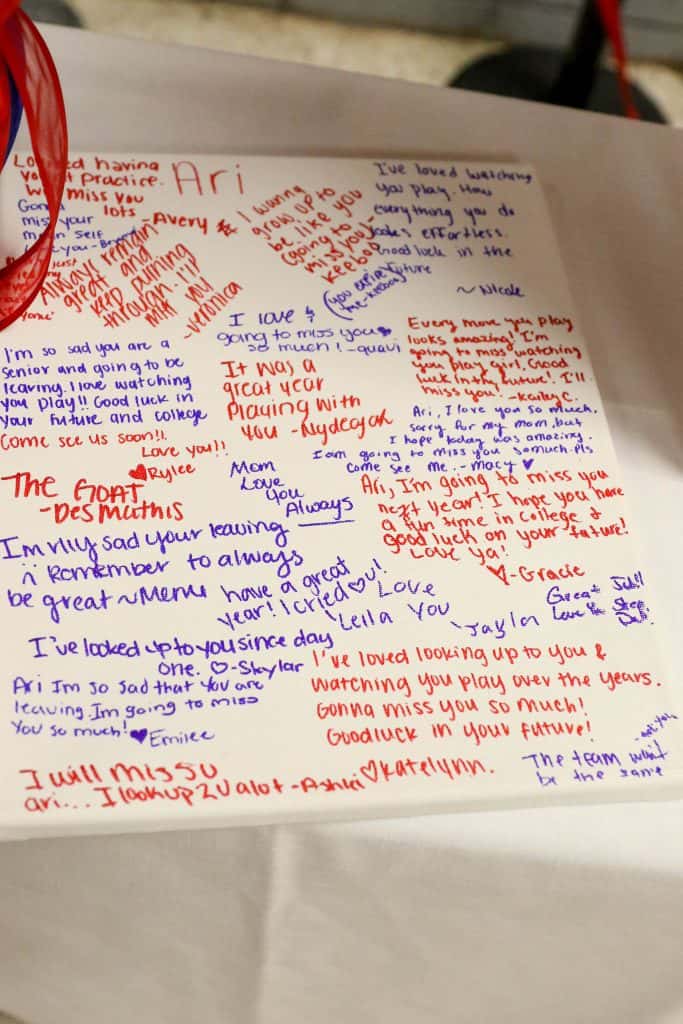 Ari
having
practice.
miss you
lots
-Avery
Gonna
miss your
self
Always remain
great and
keep pushing
through. I'll
miss you
-Veronica
I wanna
grow up to
be like you
(going to
miss you)-
keebop
(you inspire
me-keebop)
I've loved watching
you play. How
everything you do
looks effortless.
Good luck in the
future
~Nicole
I love &
going to miss you
so much! -quavi
I'm so sad you are a
senior and going to be
leaving. I love watching
you play!! Good luck in
your future and college
Come see us soon!!
Love you!!
Rylee
It was a
great year
playing with
you -Nydeojah
Every move you play
looks amazing! I'm
going to miss watching
you play girl. Good
luck in thy future! I'll
miss you! -Kailey C.
Ari, I love you so much,
sorry for my mom, but
I hope today was amazing.
I am going to miss you so much. pls
come see me. - Macy
The GOAT
-Des Mathis
Mom
Love
You
Always
Ari, I'm going to miss you
next year! I hope you have
a fun time in College &
good luck on your future!
Love ya!
-Gracie
I'm rlly sad your leaving
Remember to always
be great ~Meme
have a great
year! I cried you!
Leila
Love
You
Jaylon
Great Job!!
Love
I've looked up to you since day
one. -Skylar
Ari Im so sad that you are
leaving. Im going to miss
You so much! Emilee
I've loved looking up to you &
watching you play over the years.
Gonna miss you so much!
Goodluck in your future!
Katelynn.
I will miss u
ari... I look up 2 U alot -Ashlei
The team won't
be the same